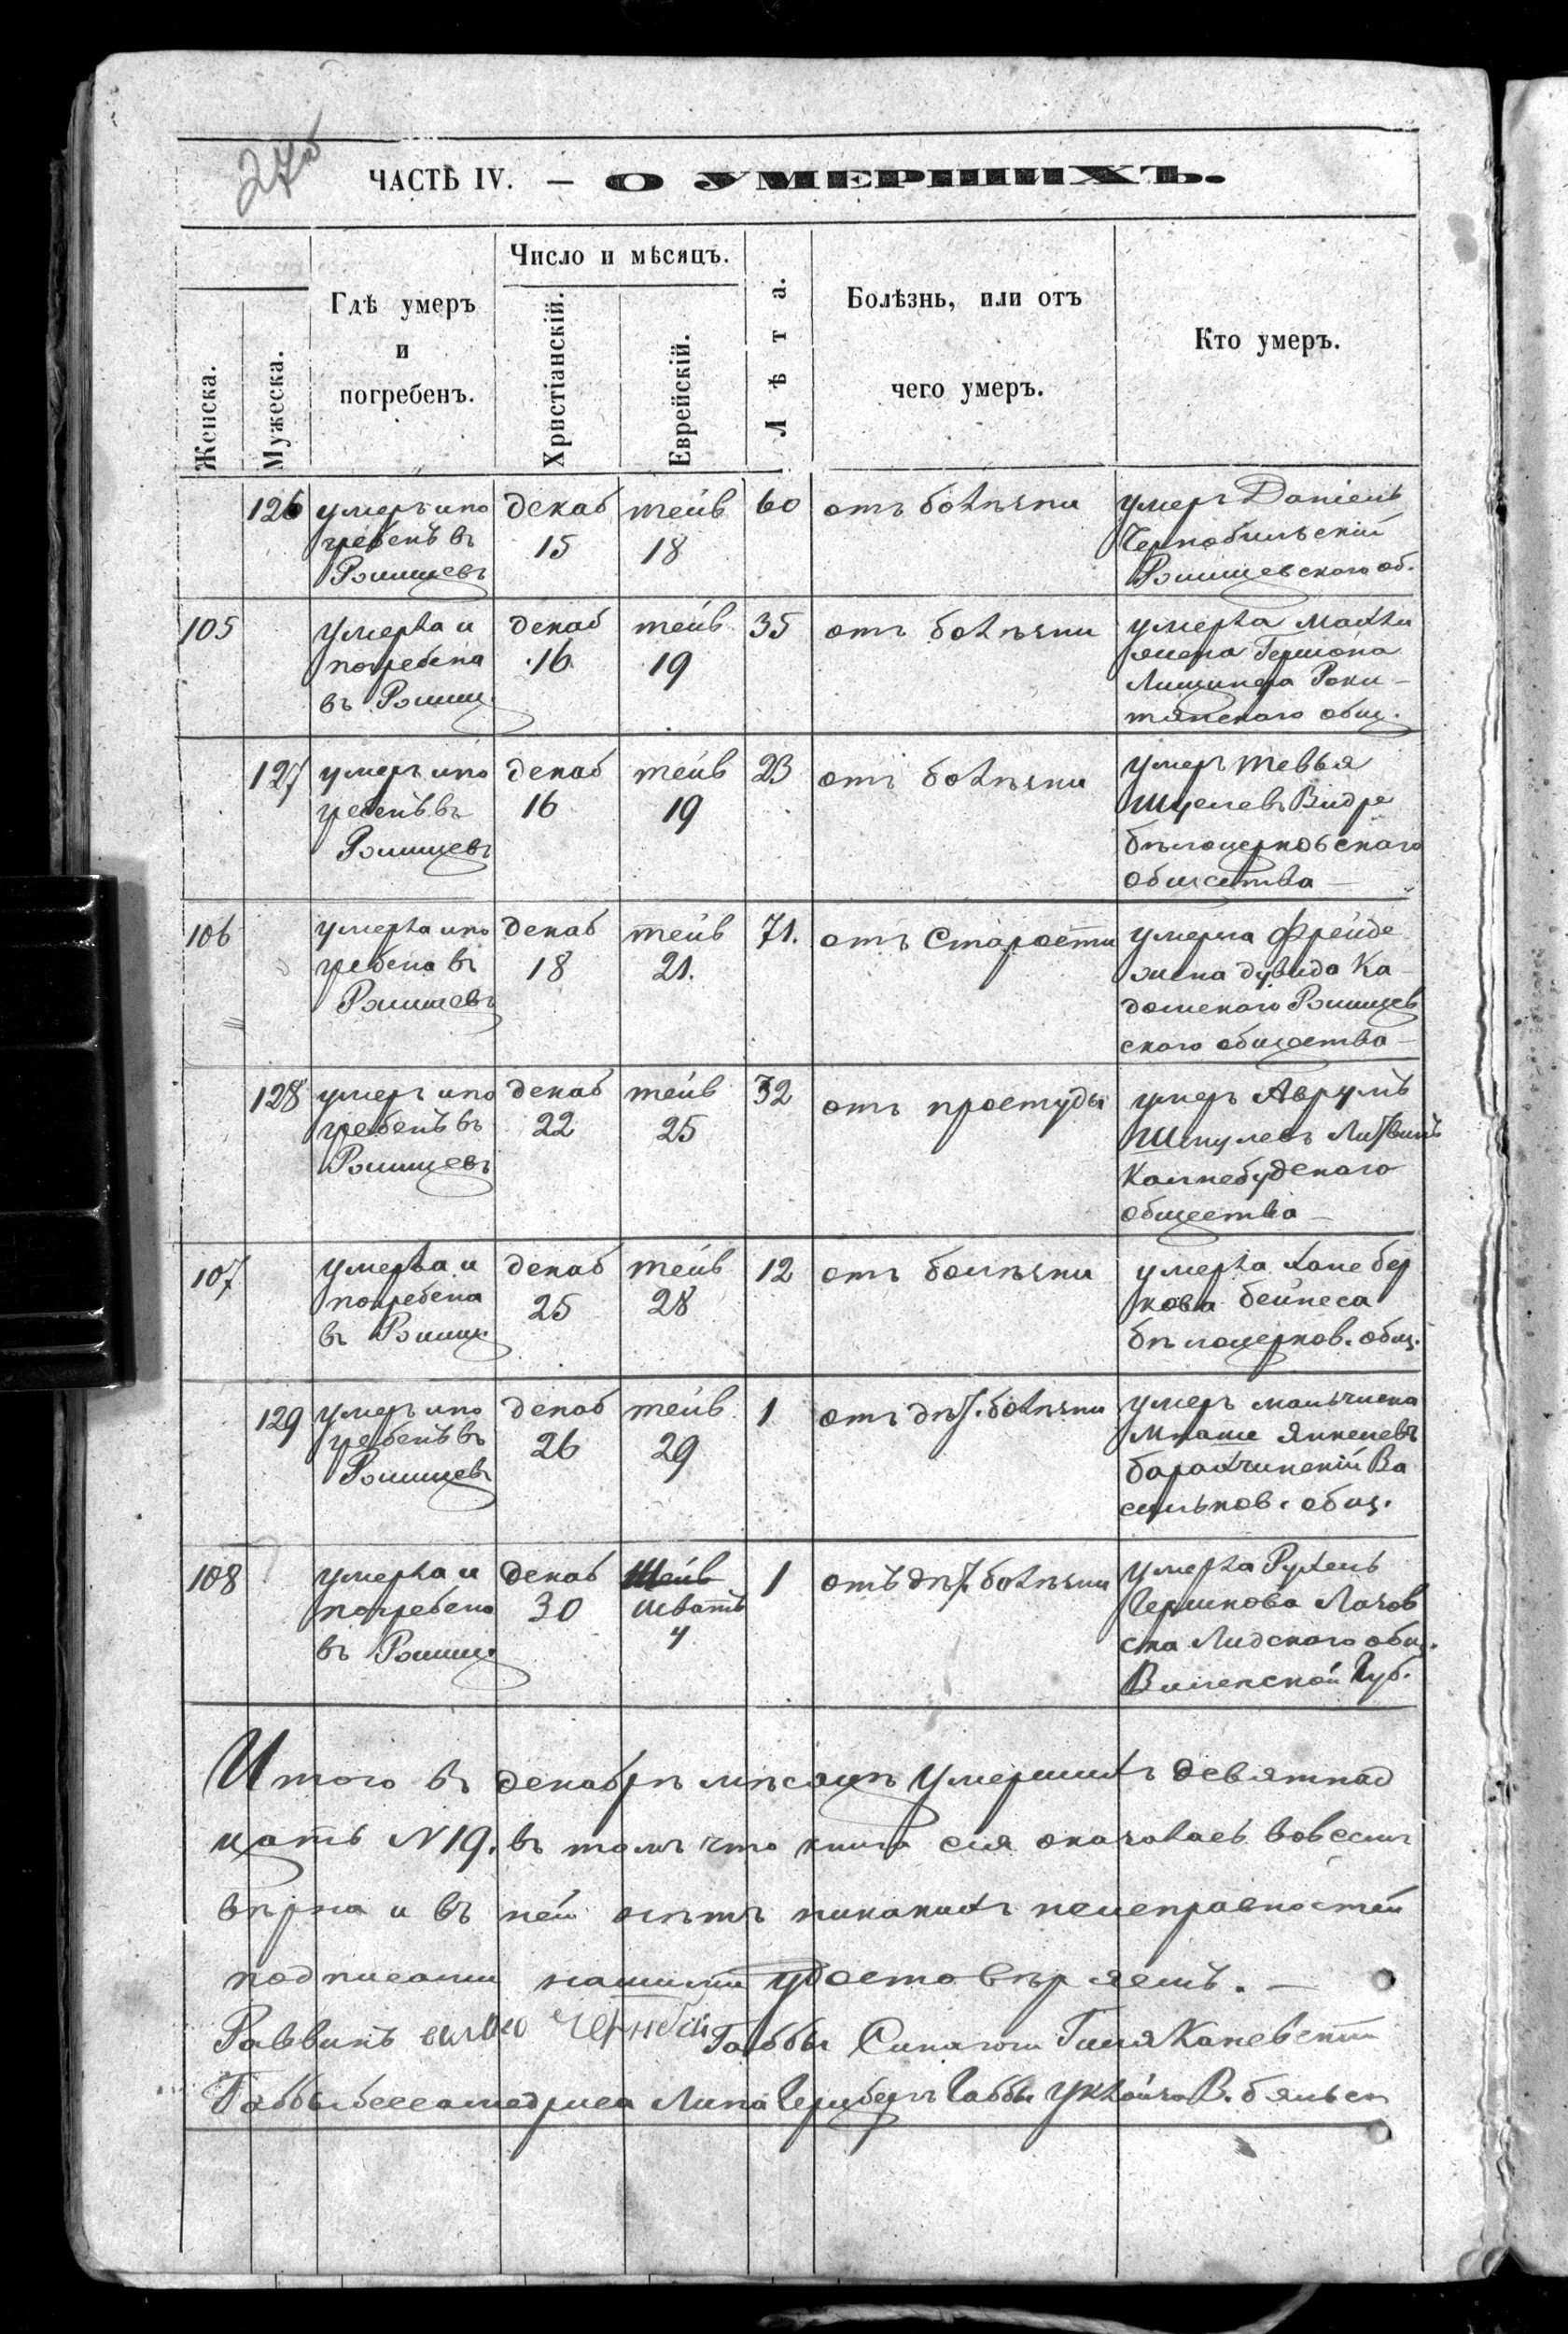 275
ЧАСТЬ IV. — О УМЕРШИХЪ.
Женска.
Мужеска.
Гдѣ умеръ
и
погребенъ.
Число и мѣсяцъ.
Христіанскій.
Еврейскій.
Лѣта.
Болѣзнь, или отъ
чего умеръ.
Кто умеръ.
126
умеръ и по
гребенъ въ
декаб
15
тейв
18
60
отъ болѣзни
умеръ Даніель
Чернобильскій
об.
105
умерла и
погребена
въ
декаб
16
тейв
19
35
отъ болѣзни
умерла Махли
жена Гершона
Роки-
тянского общ.
127
умеръ и по
гребенъ въ
декаб
16
тейв
19
23
отъ болѣзни
умеръ Тевья
Видре
бѣлоцерковского
общества —
106
умерла и по
гребена въ
декаб
18
тейв
21.
71.
отъ Старости
умерла Фрейде
жена дувида Ка-
домского
ского общества —
128
умеръ и по
гребенъ въ
декаб
22
тейв
25
32
отъ простуды
умеръ Аврумъ
Шмулевъ Литвинъ
общества —
107
умерла и
погребена
въ
декаб
25
тейв
28
12
отъ болѣзни
умерла Хане бер
кова бейнеса
бѣлоцерков. общ.
129
умеръ и по
гребенъ въ
декаб
26
тейв
29
1
отъ дѣт. болѣзни
умеръ мальчика
Янкелевъ
Ва
сильков. общ.
108
умерла и
погребена
въ
декаб
30
тейв
шватъ
4
1
отъ дѣт. болѣзни
умерла Рухель
Гершкова
ска Лидского общ.
Виленской Губ.
Итого въ декабрѣ мѣсяцѣ умершихъ девятнад
цать N 19. въ томъ что книга сія оказалась вовсемъ
вѣрна и въ ней нѣтъ никакихъ неисправностей
подписами нашими удостовѣряемъ. —
Раввинъ
Габбы Синагоги Каневскій
Габбы Липа Габбы